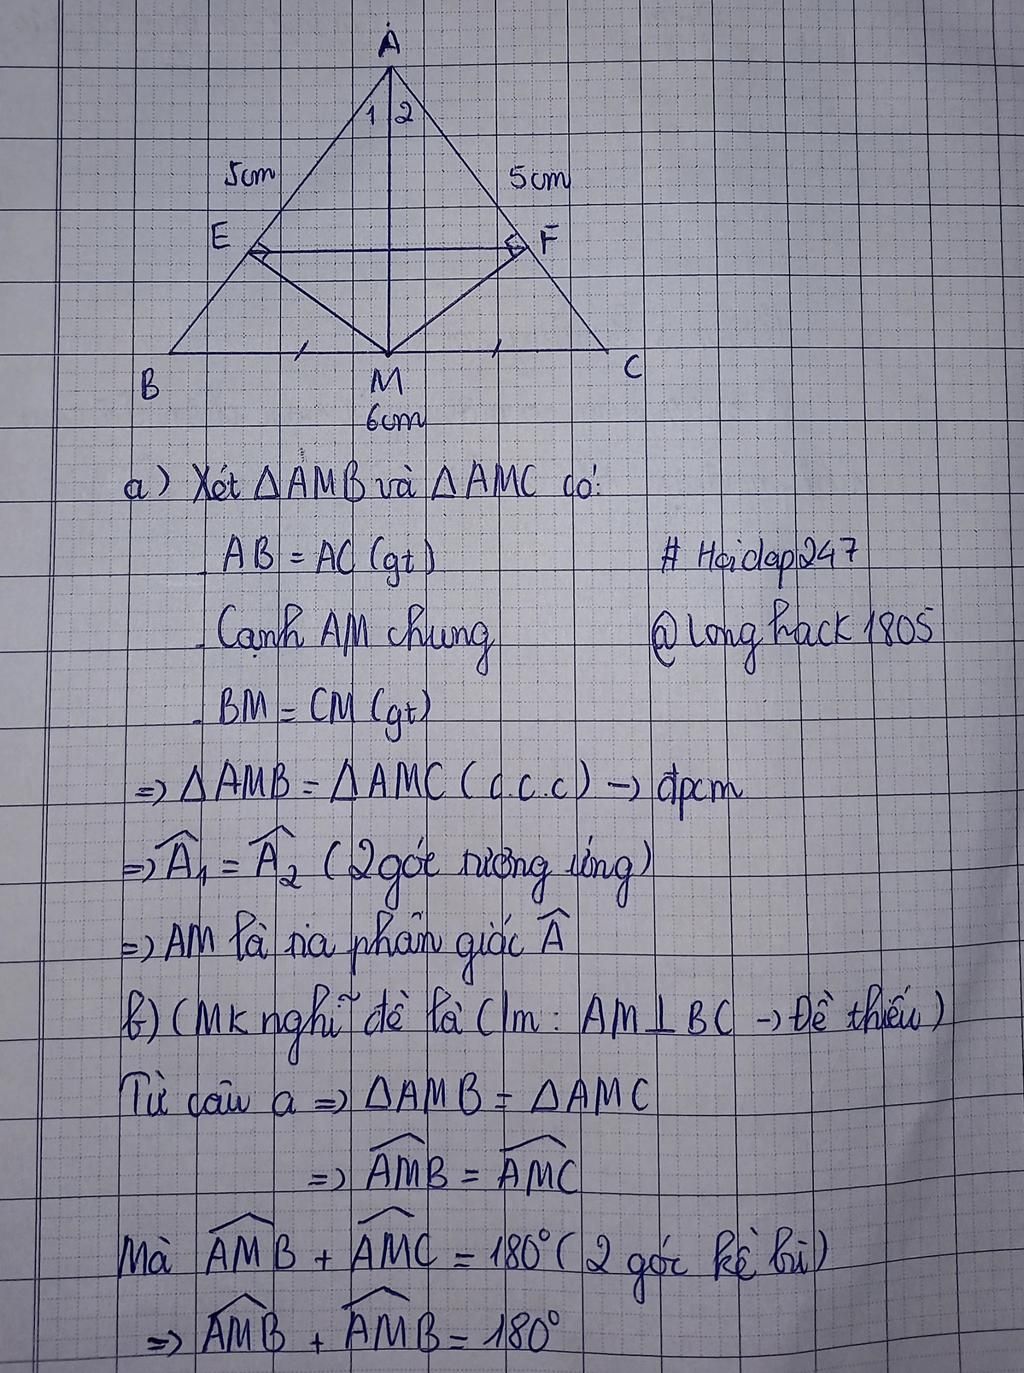 A
1 2
5cm 5cm
E F
B M C
6cm
a) Xét ΔAMB và ΔAMC có:
AB = AC (gt) # Hoidap247
Cạnh AM chung @Longhack1805
BM = CM (gt)
=> ΔAMB = ΔAMC (c.c.c) -> đpcm
=> Â₁ = Â₂ (2 góc tương ứng)
=> AM là tia phân giác Â
b) (Mk nghĩ đề là C/m: AM ⊥ BC -> Đề thiếu)
Từ câu a => ΔAMB = ΔAMC
=> \widehat{AMB} = \widehat{AMC}
Mà \widehat{AMB} + \widehat{AMC} = 180° (2 góc kề bù)
=> \widehat{AMB} + \widehat{AMB} = 180°